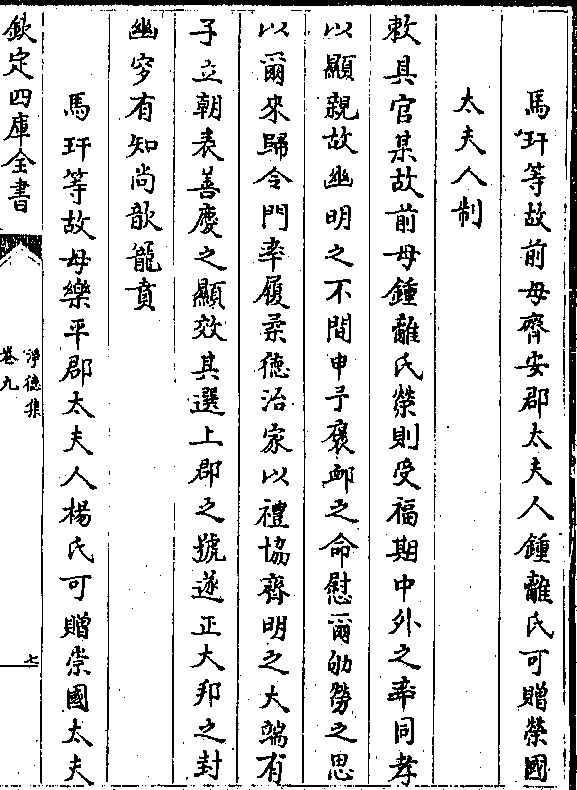 馬玕等故前母齊安郡太夫人鍾離氏可贈榮國
太夫人制
敕具官某故前母鍾離氏榮則受福期中外之率同孝
以顯親故幽明之不間申予褒䘏之命慰爾劬勞之思
以爾來歸令門率履柔德治家以禮協齊明之大端有
子立朝表善慶之顯效其選上郡之號遂正大邦之封
幽穸有知尚歆寵賁
馬玕等故母樂平郡太夫人楊氏可贈崇國太夫
欽定四庫全書
淨德集
卷九
七